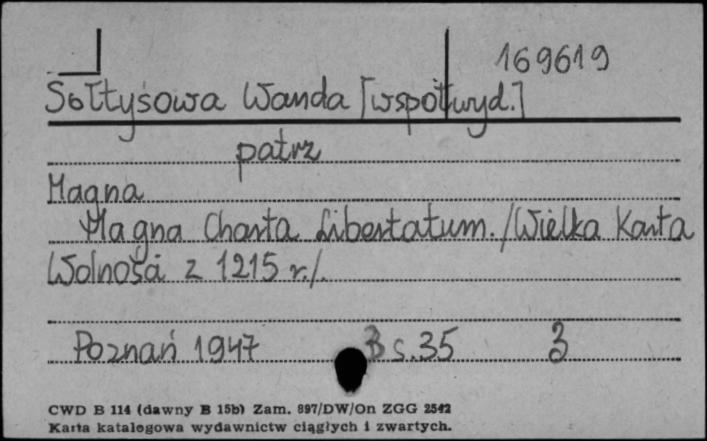 169619
Sołtysowa Wanda [współwyd.]
patrz
Magna
Magna Charta Libertatum. /Wielka Karta
Wolności z 1215 r./.
Poznań 1947 s. 35 3
CWD B 114 (dawny B 15b) Zam. 897/DW/On ZGG 2542
Karta katalogowa wydawnictw ciągłych i zwartych.